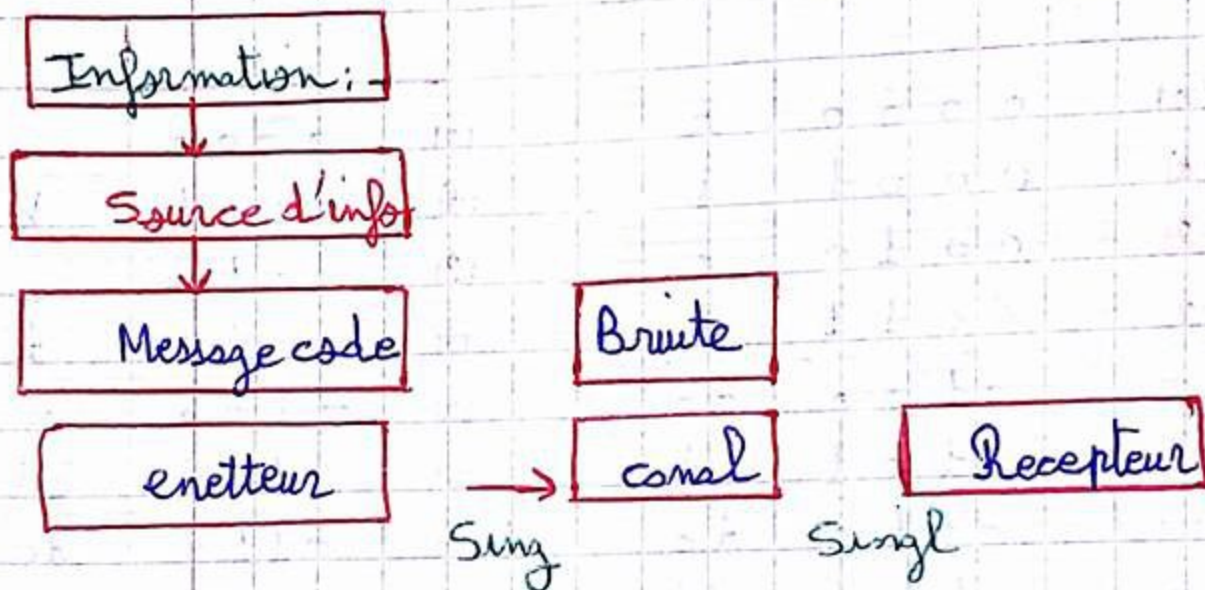 Information : -
Source d'info
Message code
Bruite
enetteur
canal
Recepteur
Sing
Singl